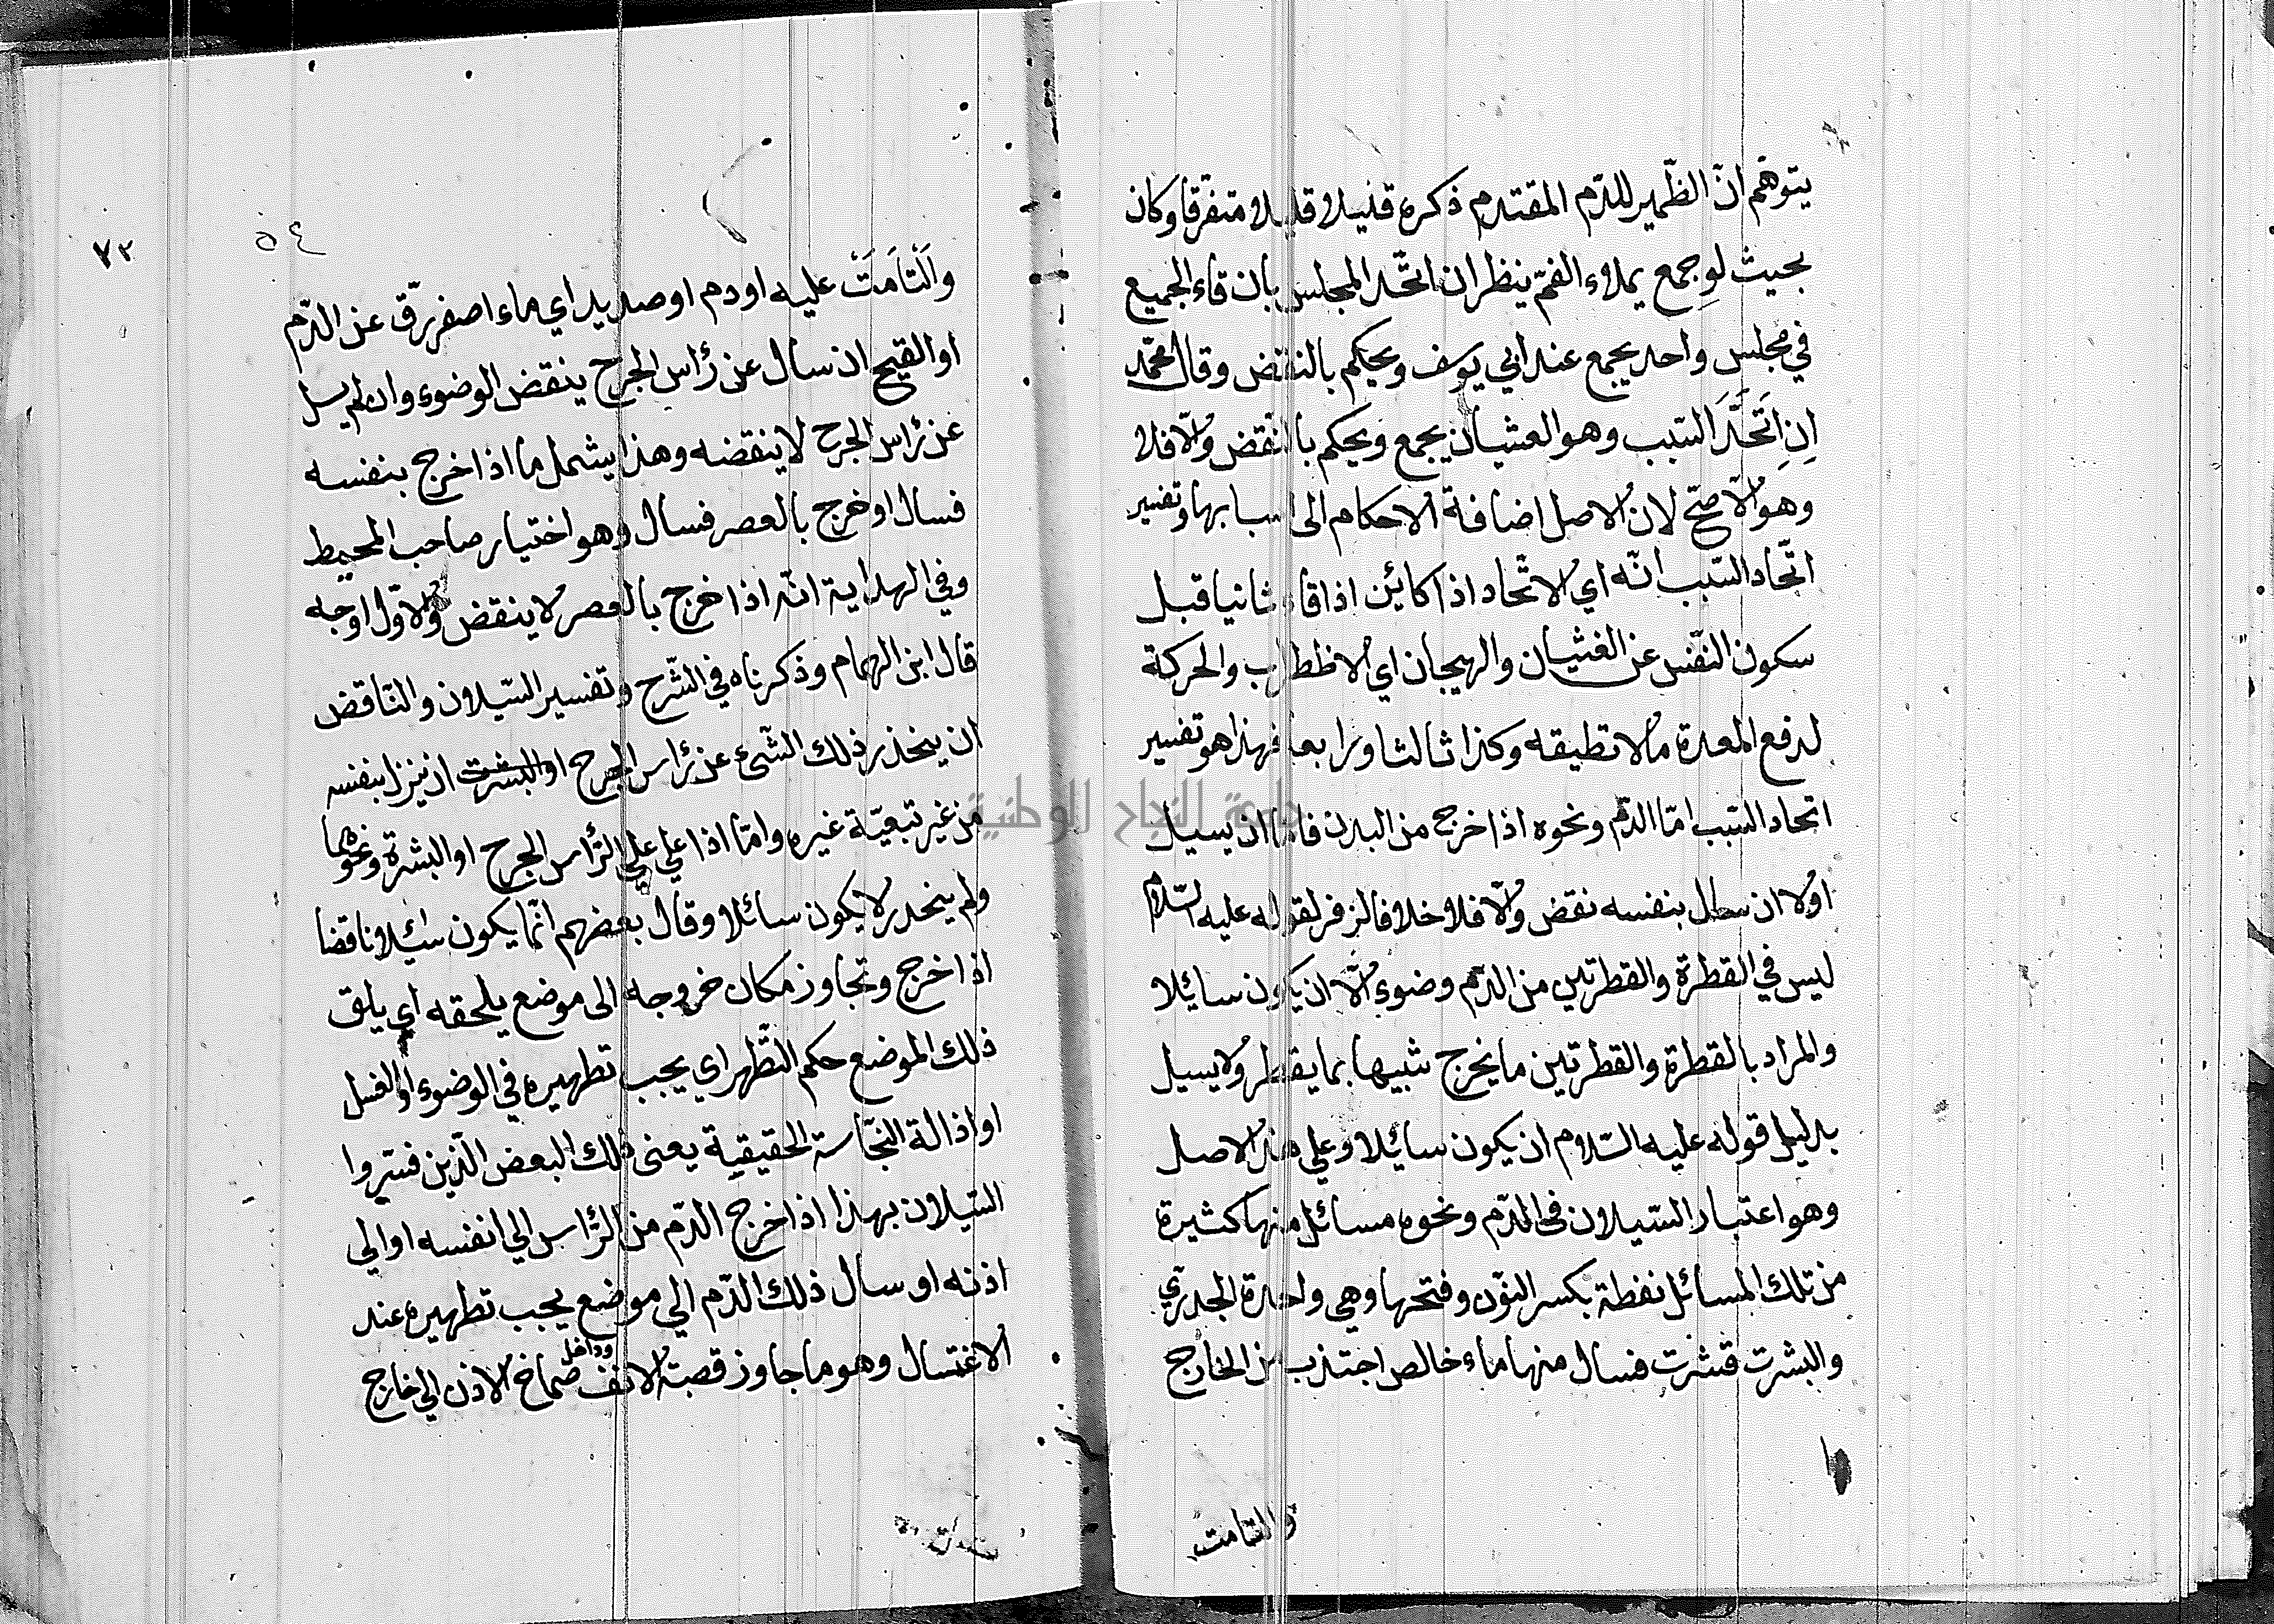 يتوهّم انّ الظّمير للدّم المقتدم ذكره قليلا قليلا متفرّقا وكان
بحيث لوجمع يملاء الفمّ ينظر ان اتّحد المجلس بان قاء الجميع
في مجلس واحد يجمع عند ابي يوسف ويحكم بالنقض وقال محمّد
اِنِ اتَّحَدَ السّبب وهو العشيان يجمع ويحكم بالنقض والّا فلا
وهو الاصحّ لان الاصل اضافة الاحكام الى اسبابها وتفسير
اتّحاد السّبب انّه اي الاتّحاد اذا كائن اذا قاء ثانيا قبل
سكون النّفس عن الغثيان والهيجان اي الاظطراب والحركة
لدفع المعدة ما لا تطيقه وكذا ثالثا ورابعا فهذا هو تفسير
اتحاد السّبب امّا الدّم ونحوه اذا خرج من البدن فامّا ان يسيل
اولا ان سال بنفسه نقض والّا فلا خلافا لزفر لقوله عليه السّلام
ليس في القطرة والقطرتين من الدّم وضوء الّا ان يكون سائلا
والمراد بالقطرة والقطرتين ما يخرج شبيها بما يقطر ولا يسيل
بدليل قوله عليه السّلام ان يكون سائلا وعلى هذا الاصل
وهو اعتبار السّيلان في الدّم ونحوه مسائل منها كثيرة
من تلك المسائل نفطة بكسر النّون وفتحها وهي واحدة الجدري
والبشرت قشرت فسال منها ماء خالص اجتذب من الخارج
والتامت
٧٢
٥٤
والْتَامَتْ عليه اودم اوصديد اي ماء اصفر برّق عن الدّم
او القيح ان سال عن رأس الجرح ينقض الوضوء وان لم يسل
عن رأس الجرح لا ينقضه وهذا يشمل ما اذا خرج بنفسه
فسال او خرج بالعصر فسال وهو اختيار صاحب المحيط
وفي الهداية انّه اذا خرج بالعصر لا ينقض والاوّل اوجه
قال ابن الهمام وذكرناه في الشّرح وتفسير السّيلان والنّاقض
ان ينحذر ذلك الشّئ عن رأس الجرح او البشرت اذ ينزل بنفسه
من غير تبعيّة غيره وامّا اذا علي علي الرّأس الجرح او البشرة ونحوهما
ولم ينحدر لا يكون سائلا وقال بعضهم انّما يكون سائلا ناقضا
اذا خرج وتجاوز مكان خروجه الى موضع يلحقه اي يلق
ذلك الموضع حكم التّطهر اي يجب تطهيره في الوضوء او الغسل
او اذالة النّجاسة الحقيقية يعنى ذلك البعض الّذين فسّروا
السّيلان بهذا اذا خرج الدّم من الرّأس الي انفسه او الي
اذنه او سال ذلك الدّم الي موضع يجب تطهيره عند
الاغتسال وهو ما جاوز قصبة الانف وداخل صماخ الاذن الي خارج
جامعة النجاح الوطنية